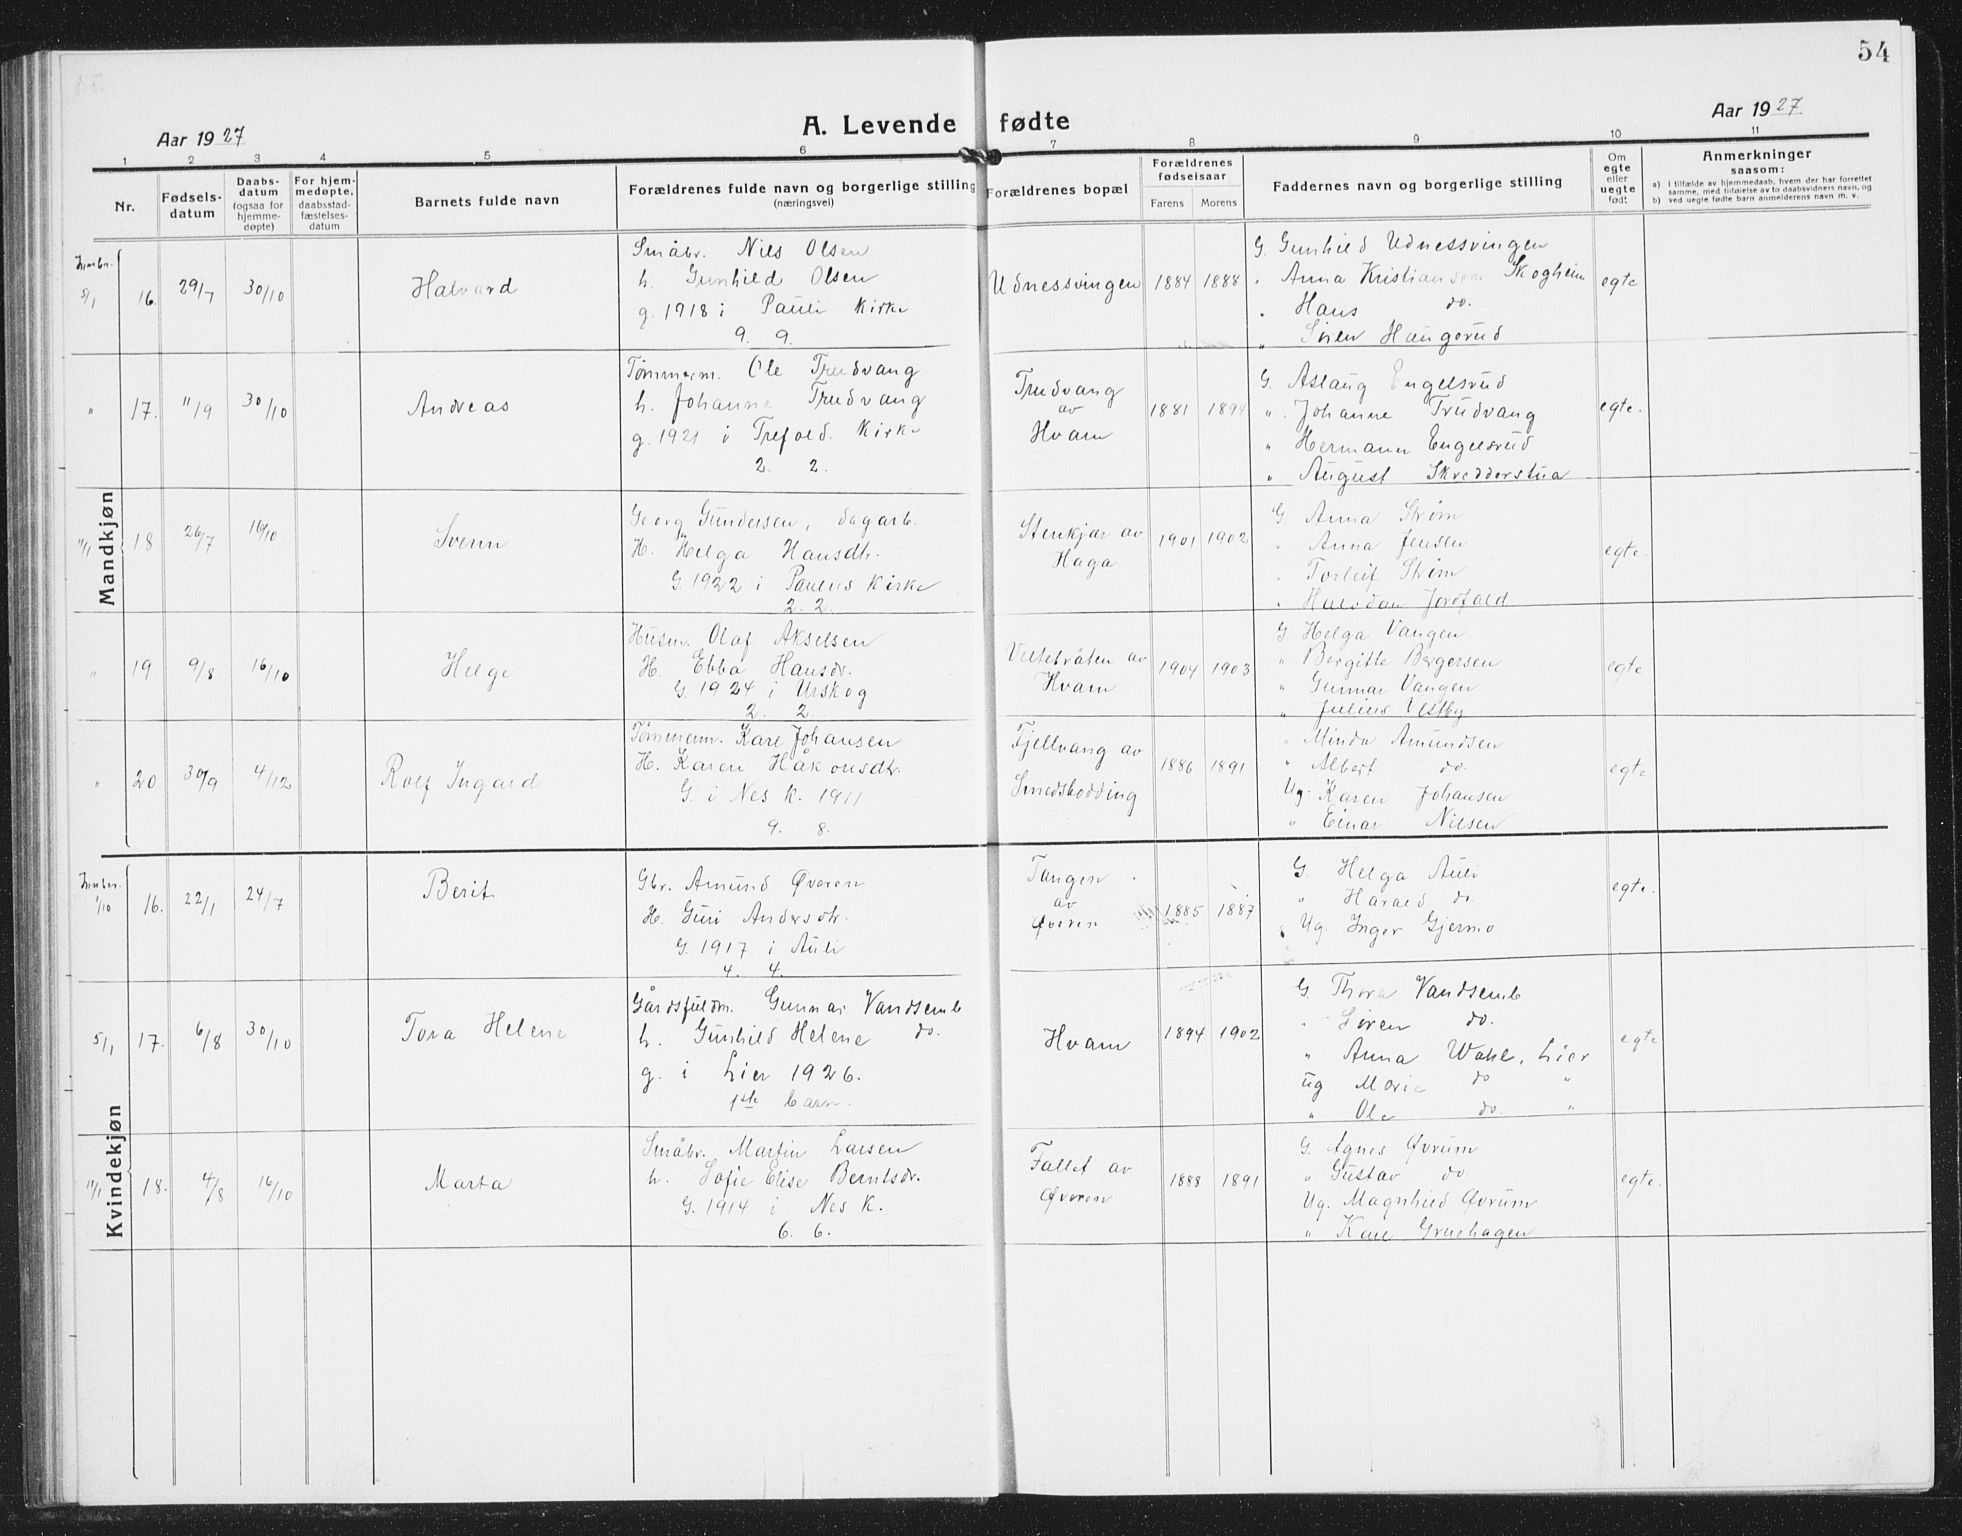 54
Aar 1927
A. Levende fødte
Aar 1927
1 2 3 4 5 6 7 8 9 10 11
Nr.
Fødsels-
datum
Daabs-
datum
(ogsaa for
hjemme-
døpte)
For hjem-
medøpte,
daabsstad-
fæstelses-
datum
Barnets fulde navn
Forældrenes fulde navn og borgerlige stilling
(næringsvei)
Forældrenes bopæl
Forældrenes
fødseisaar
Farens Morens
Faddernes navn og borgerlige stilling
Om
egte
eller
uegte
født
Anmerkninger
saasom:
a) I tilfælde av hjemmedaab, hvem der har forrettet
samme, med tilføielse av to daabsvidners navn, og
b) ved uegte fødte barn anmelderens navn m. v.
Mandkjøn
5/1 16. 29/7 30/10 Halvard
Småbr. Nils Olsen
h. Gunhild Olsen
g. 1918 i Pauli Kirke
9. 9.
Udnessvingen 1884 1888
G. Gunhild Udnessvingen
" Anna Kristiansen Skogheim
" Hans do.
" Søren Haugerud
egte
" 17. 11/9 30/10 Andreas
Tømmerm. Ole Trudvang
h. Johanne Trudvang
g. 1921 i Trefold. Kirke
2. 2.
Trudvang
av
Hvam
1881 1894
G. Aslaug Engelsrud
" Johanne Trudvang
" Hermann Engelsrud
" August Skredderstua
egte.
11/1 18 26/7 16/10 Svenn
Georg Gundersen, dagarb.
H. Helga Hansdtr.
G. 1922 i Paulus Kirke
2. 2.
Stenkjær av
Haga
1901 1902
G Anna Strøm
" Anna Jensen
" Torleif Strøm
" Halvdan Jordfald
egte.
" 19 9/8 16/10 Helge
Husm. Olaf Akselsen
H. Ebba Hansdr.
G 1924 i Urskog
2. 2.
Veltebråten av
Hvam
1904 1903
G. Helga Vangen
" Bergitte Bergersen
" Gunnar Vangen
" Julius Vestby
egte
" 20 30/9 4/12 Rolf Ingard
Tømmerm. Kare Johansen
H. Karen Håkonsdtr.
G. i Nes K. 1911
9. 8.
Fjellvang av
Smedsbodding
1886 1891
" Minda Amundsen
" Albert do.
Ug. Karen Johansen
" Einar Nilsen
egte
Kvindekjøn
1/10 16. 22/1 24/7 Berit
Gbr. Amund Øveren
H. Guri Andersdtr.
G. 1917 i Auli
4. 4.
Tangen
av
Øveren
1885 1887
G. Helga Auli
" Harald do.
Ug. Inger Gjermo
egte.
5/1 17. 6/8 30/10 Tora Helene
Gårdsfuldm. Gunnar Vandsemb
h. Gunhild Helene do.
g. i Lier 1926.
1ste barn.
Hvam 1894 1902
G. Thora Vandsemb
" Søren do.
" Anna Wahl, Lier
ug Marie do "
" Ole do. "
egte
11/1 18. 4/8 16/10 Marta
Småbr. Martin Larsen
h. Sofie Elise Berntsdr.
G. 1914 i Nes K.
6. 6.
Fallet av
Øveren
1888 1891
G. Agnes Øvrum
" Gustav do.
Ug. Magnhild Øvrum
" Kare Gruehagen
egte.